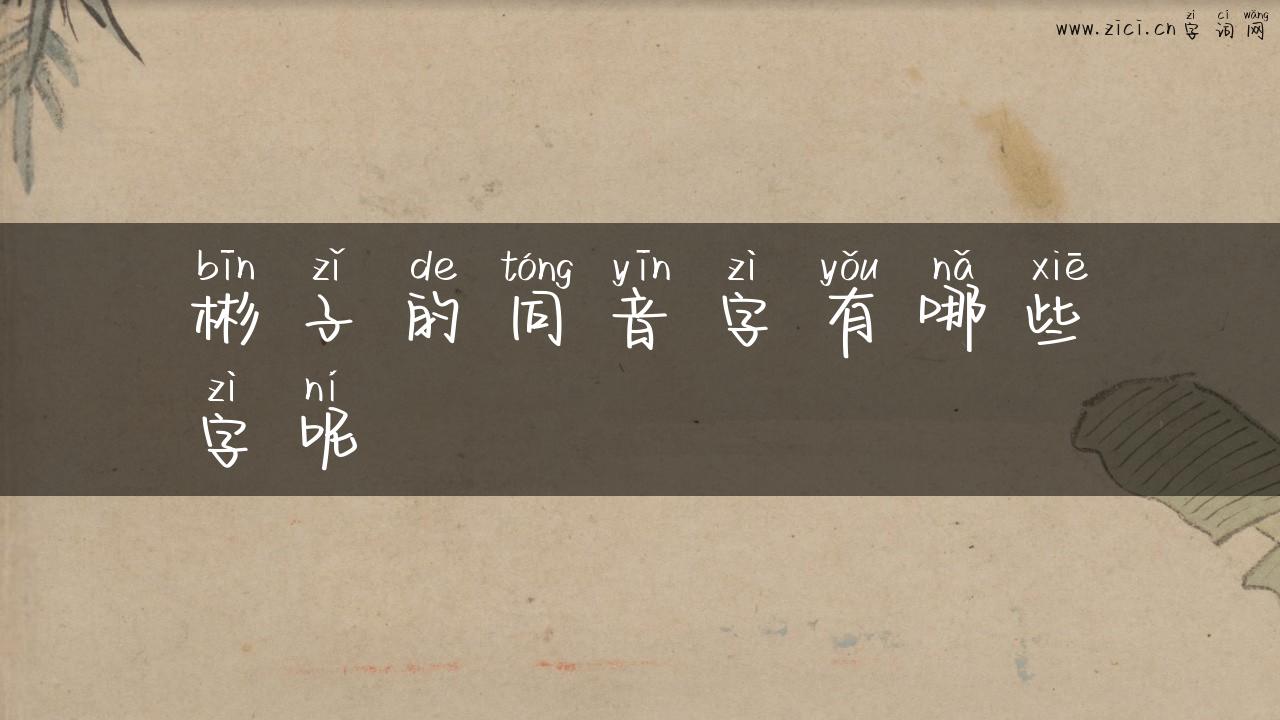 zì cí wǎng
www.zici.cn 字词网
bīn zǐ de tóng yīn zì yǒu nǎ xiē
彬子的同音字有哪些
zì ní
字呢